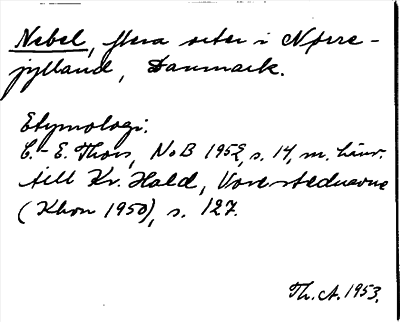 Nebel, flera orter i Nørre-
jylland, Danmark.
Etymologi:
C.-E. Thors, NoB 1952, s. 14, m. hänv.
till Kr. Hald, Vore stednavne
(Khvn 1950), s. 127.
Th. A. 1953.